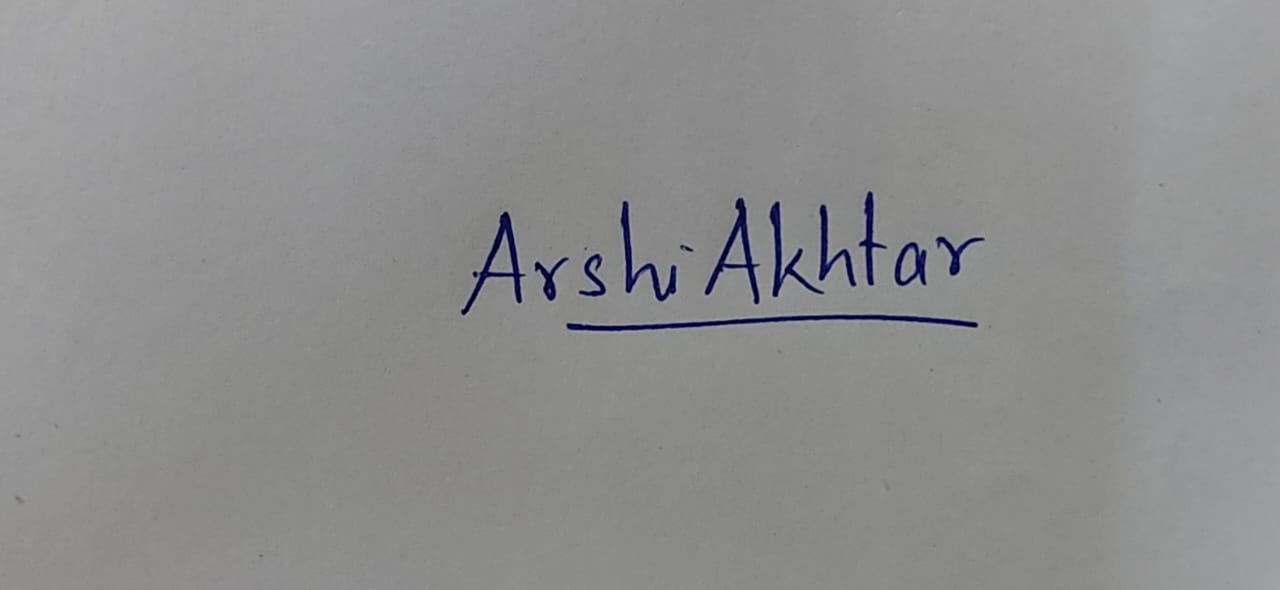 Arshi Akhtar